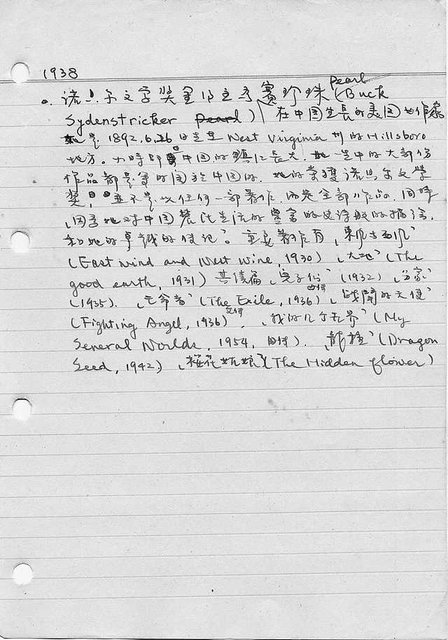 1938
諾貝尔文学奖星 賽珍珠 (Buck Pearl
Sydenstricker Pearl) 在中国生長的美国女作家
她是 1892.6.26 日生至 West Virginia 州的 Hillsboro
地方。小時即是中国的鎮江長大。她一生中的大部份
作品都是寫的関於中国的。她的榮獲諾貝尔文学
奖, 並不是以任何一部著作, 而是全部作品。同時
因為她对中国農民生活的豐富的史詩般的描寫,
和她的卓越的傳記。重長著作有, 東風西風
(East wind and West Wine, 1930) 、大地 (The
good earth, 1931) 其續篇、兒子們 (1932) 、分家
(1935) 、 (The Exile, 1936) 、戰鬥的天使
(Fighting Angel, 1936) 、我的几个世界 (My
Several Worlds, 1954, 自傳) 、龍種 (Dragon
Seed, 1942) 、梅花姑娘 (The Hidden flower)